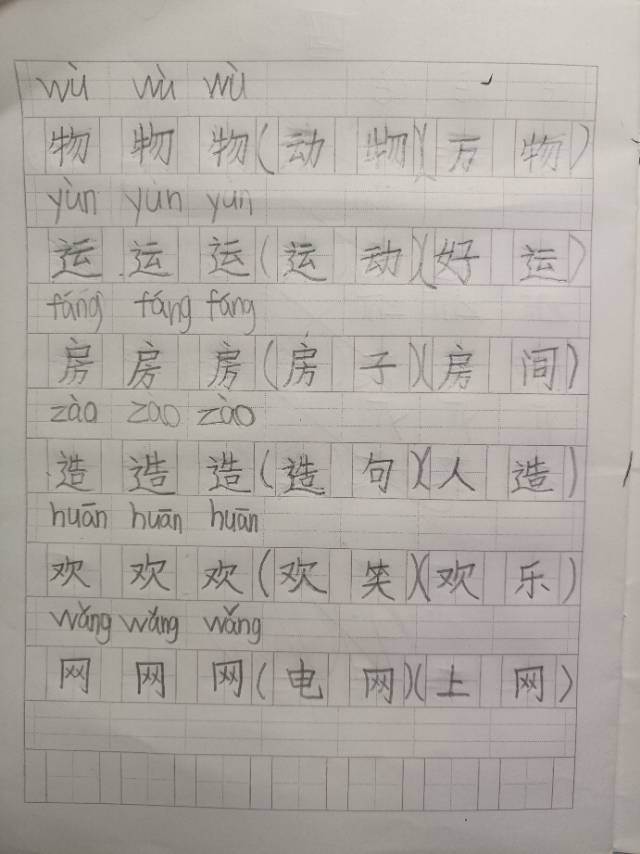 wù wù wù
物 物 物(动 物)(万 物)
yùn yùn yùn
运 运 运(运 动)(好 运)
fáng fáng fáng
房 房 房(房 子)(房 间)
zào zào zào
造 造 造(造 句)(人 造)
huān huān huān
欢 欢 欢(欢 笑)(欢 乐)
wǎng wǎng wǎng
网 网 网(电 网)(上 网)